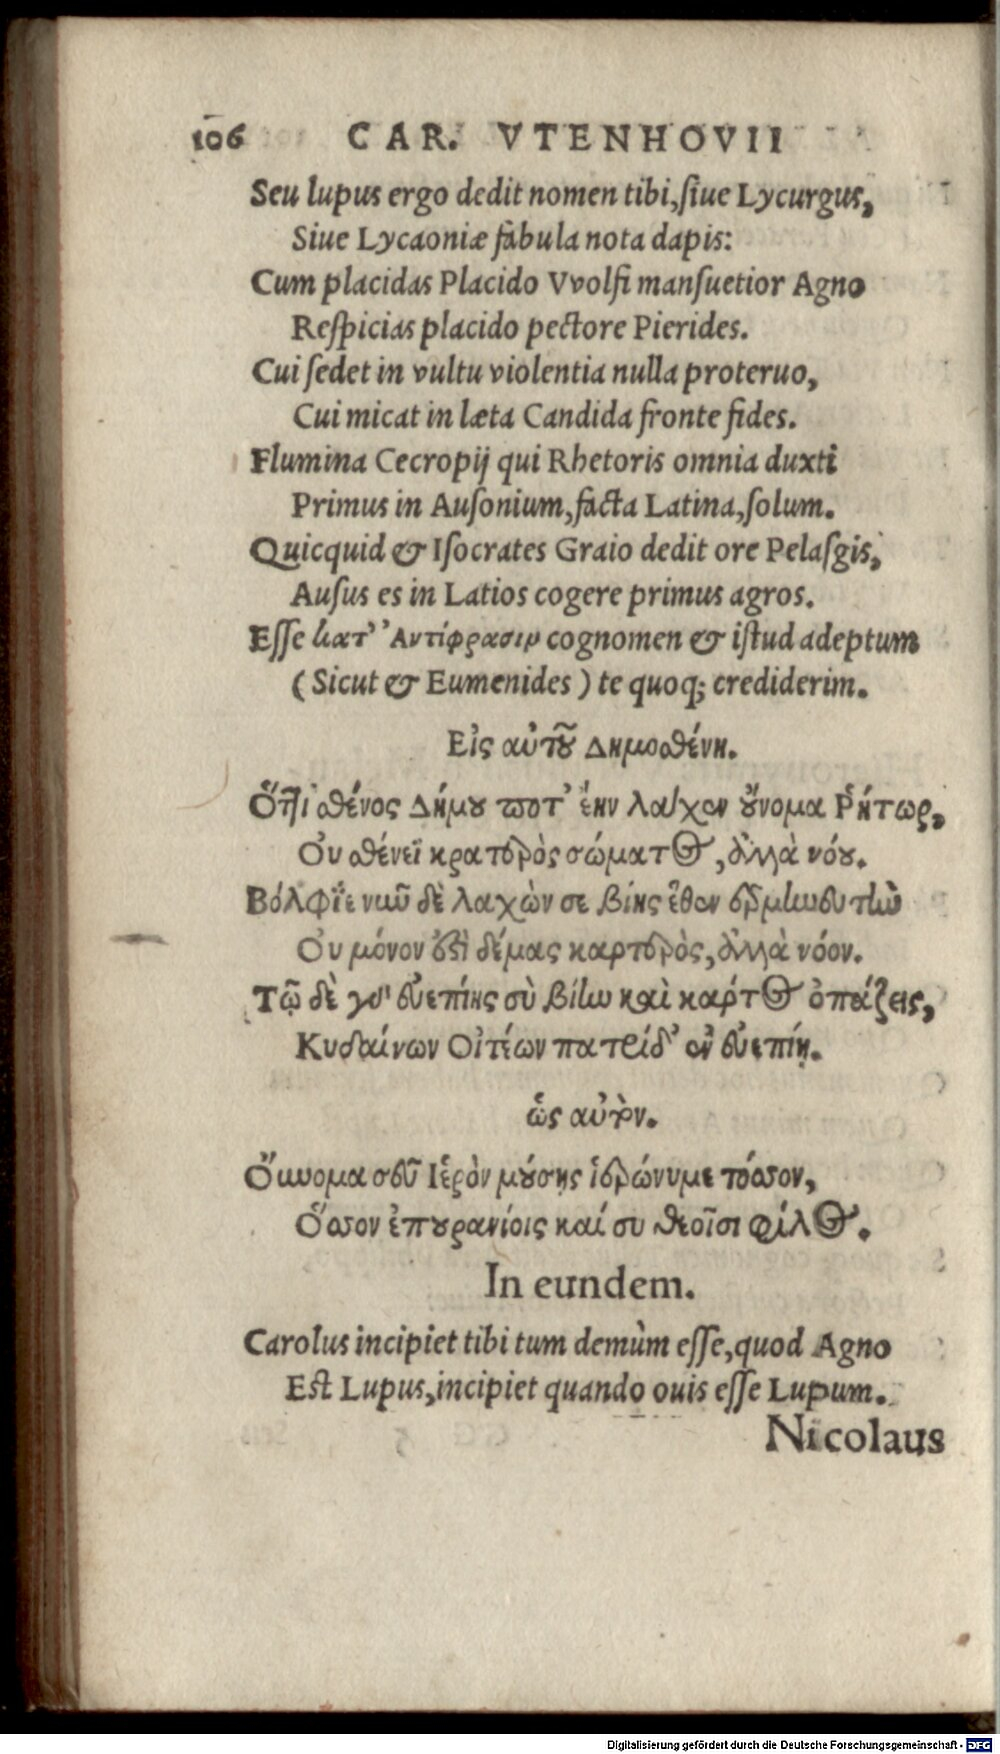 106 CAR. VTENHOVII
Seu lupus ergo dedit nomen tibi, siue Lycurgus,
Siue Lycaoniæ fabula nota dapis:
Cum placidas Placido Vvolfi mansuetior Agno
Respicias placido pectore Pierides.
Cui sedet in vultu violentia nulla proteruo,
Cui micat in læta Candida fronte fides.
Flumina Cecropij qui Rhetoris omnia duxti
Primus in Ausonium, facta Latina, solum.
Quicquid & Isocrates Graio dedit ore Pelasgis,
Ausus es in Latios cogere primus agros.
Esse κατ' Ἀντίφρασιν cognomen & istud adeptum
(Sicut & Eumenides) te quoq; crediderim.
Εἰς αὐτοῦ Δημοσθένη.
Ὅττι σθένος Δήμου ποτ' ἔην λάχεν οὔνομα Ῥήτωρ,
Οὐ σθένεϊ κρατερὸς σώματος, ἀλλὰ νόου.
Βόλφϊε νῦν δὲ λαχὼν σε βίης ἔθεν ἑρμηνευτὴν
Οὐ μόνον ἐστὶ δέμας καρτερὸς, ἀλλὰ νόον.
Τῷ δὲ γὰρ εὐεπίης σὺ βίην καὶ κάρτος ὀπάζεις,
Κυδαίνων Οἰτέων πατρίδ' ἐν εὐεπίῃ.
ὡς αὐτόν.
Οὔνομα σεῦ Ἱερὸν μούσῃς ἱερώνυμε τόσσον,
Ὅσσον ἐπουρανίοις καί συ θεοῖσι φίλος.
In eundem.
Carolus incipiet tibi tum demùm esse, quod Agno
Est Lupus, incipiet quando ouis esse Lupum.
Nicolaus
Digitalisierung gefördert durch die Deutsche Forschungsgemeinschaft - DFG